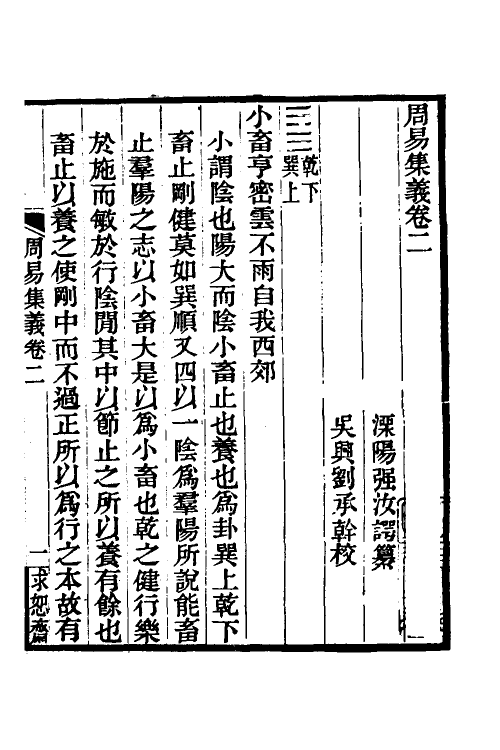 周易集義卷二
溧陽强汝諤纂
吳興劉承幹校
乾下
巽上
小畜亨密雲不雨自我西郊
小謂陰也陽大而陰小畜止也養也爲卦巽上乾下
畜止剛健莫如巽順又四以一陰爲羣陽所說能畜
止羣陽之志以小畜大是以爲小畜也乾之健行樂
於施而敏於行陰閒其中以節止之所以養有餘也
畜止以養之使剛中而不過正所以爲行之本故有
周易集義卷二
一
求恕齋